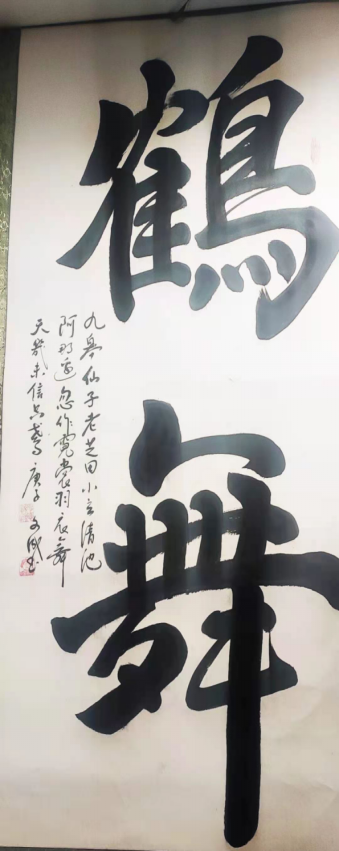 鶴舞
九皋仙子老芝田小立清池
阿那邊忽作霓裳羽衣舞
天未信 庚子